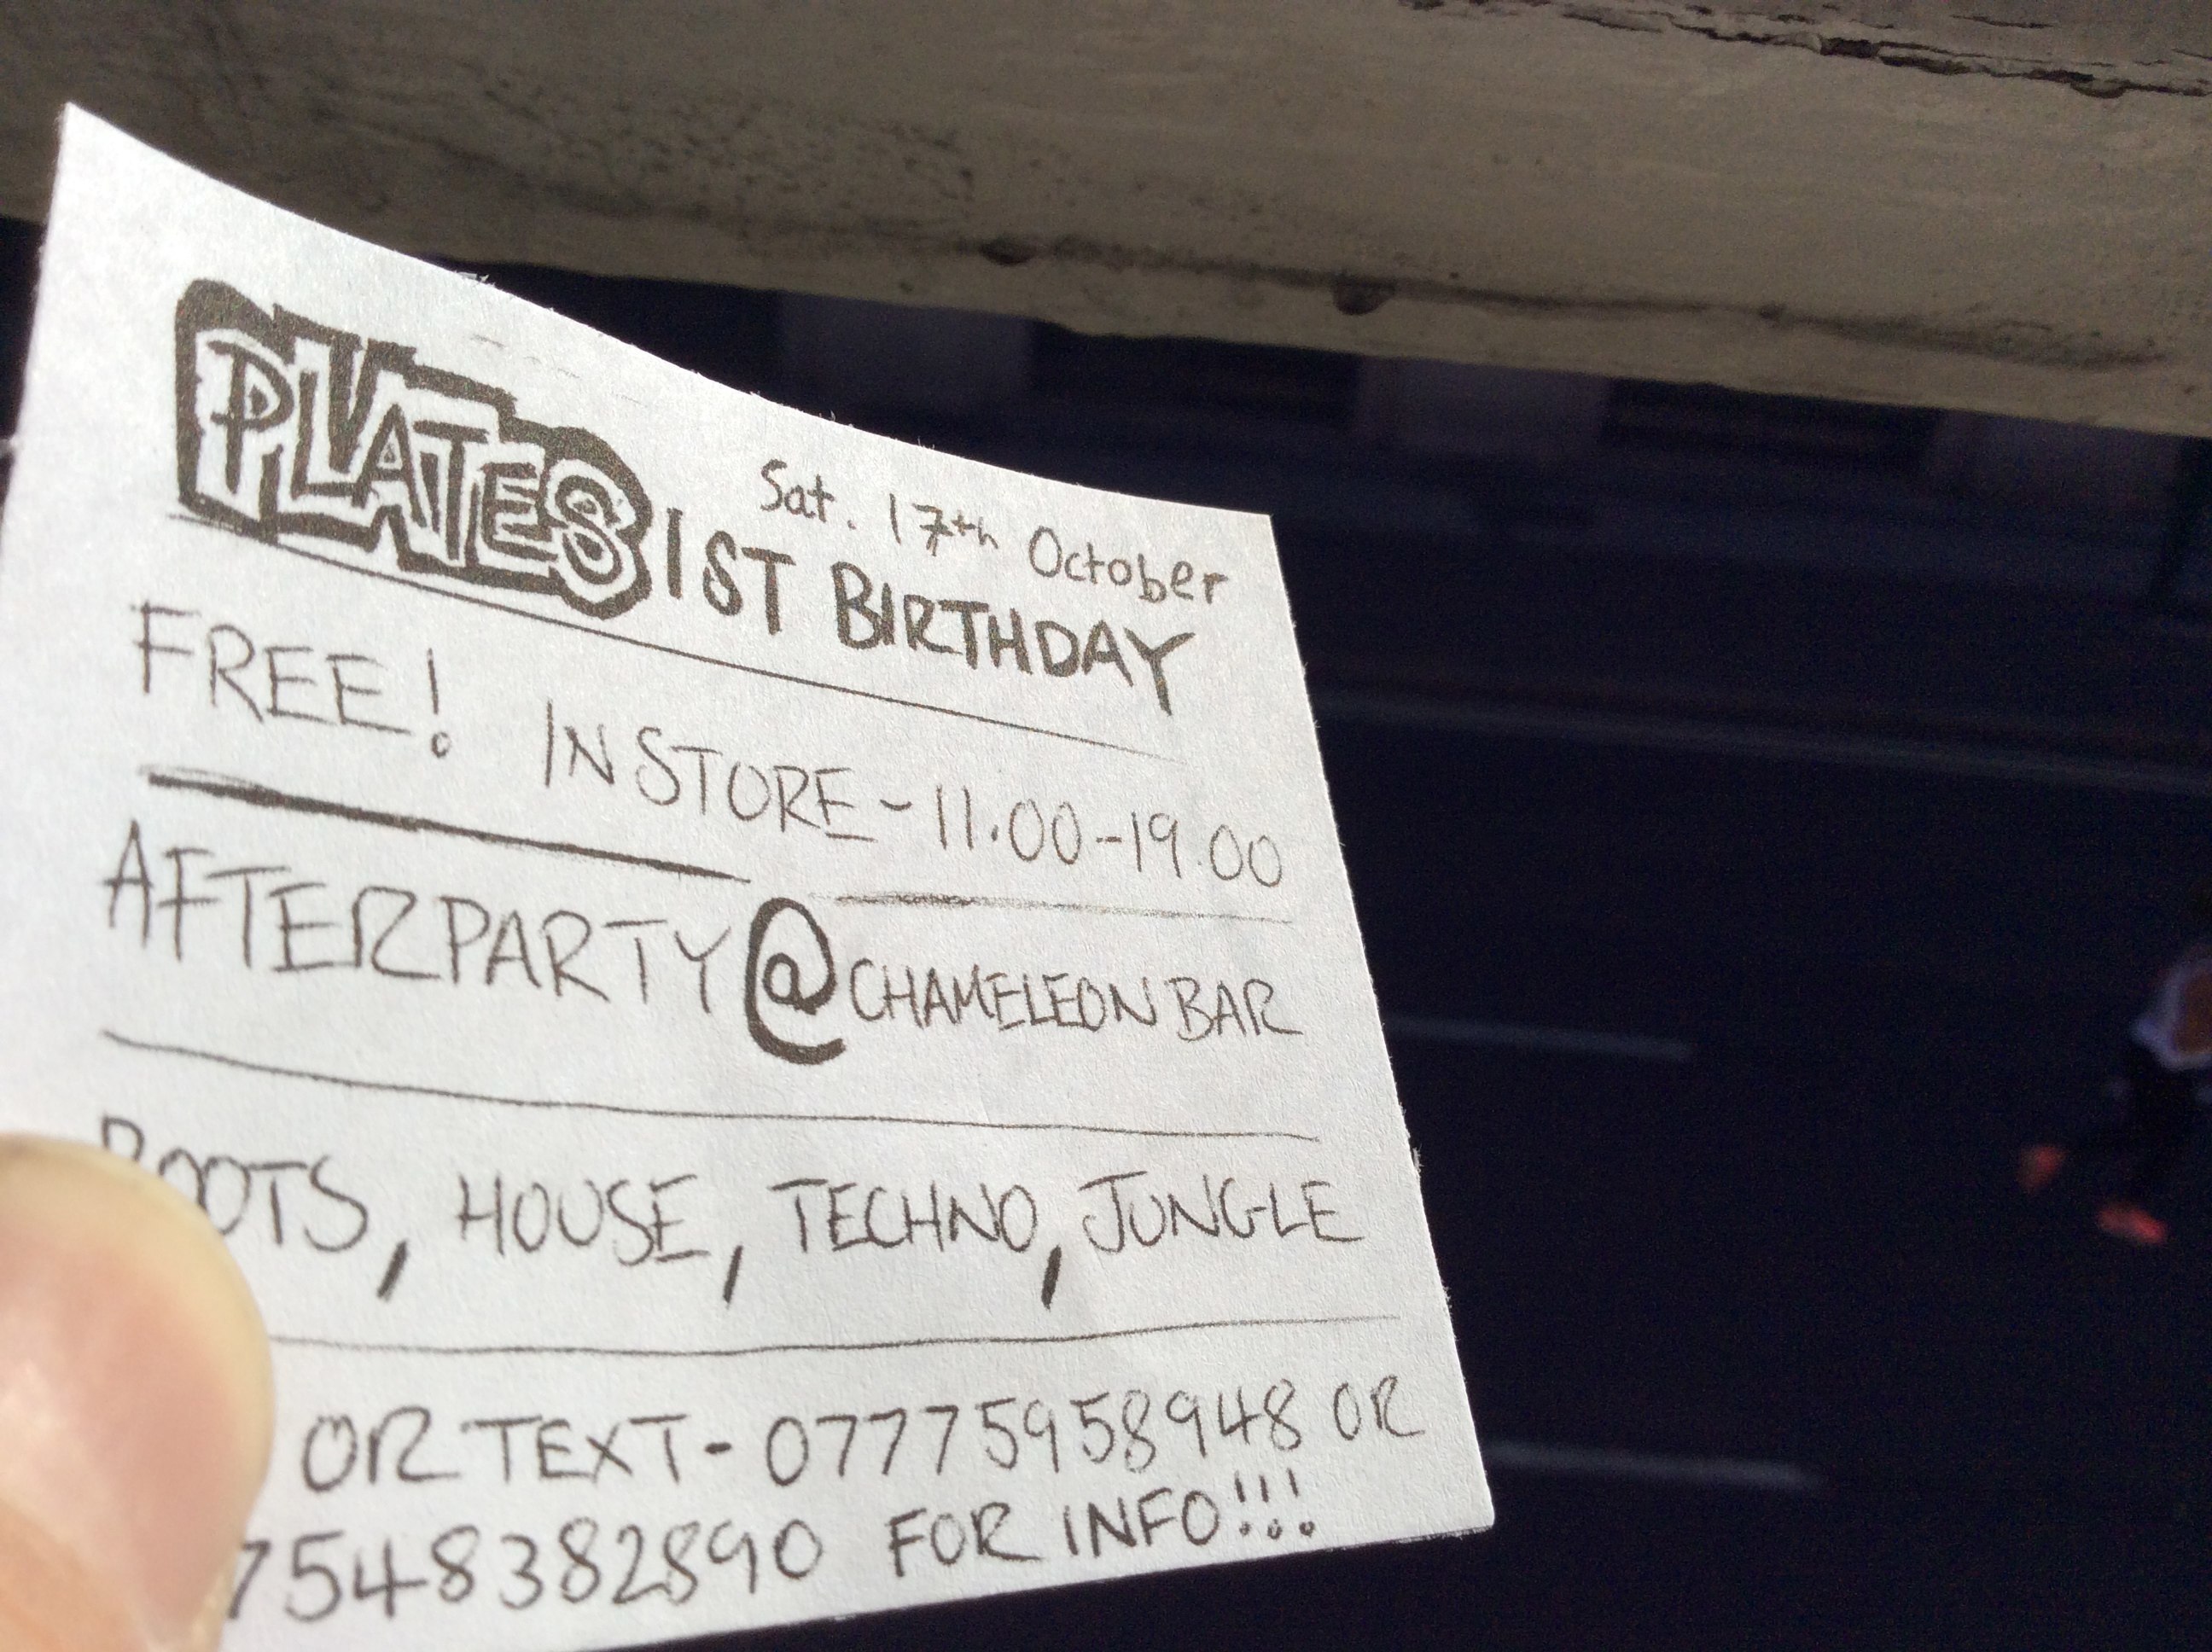 Sat. 17th October
PLATES 1ST BIRTHDAY
FREE! INSTORE - 11.00-19.00
AFTERPARTY @ CHAMELEON BAR
ROOTS, HOUSE, TECHNO, JUNGLE
OR TEXT - 07775958948 OR
7548382890 FOR INFO!!!